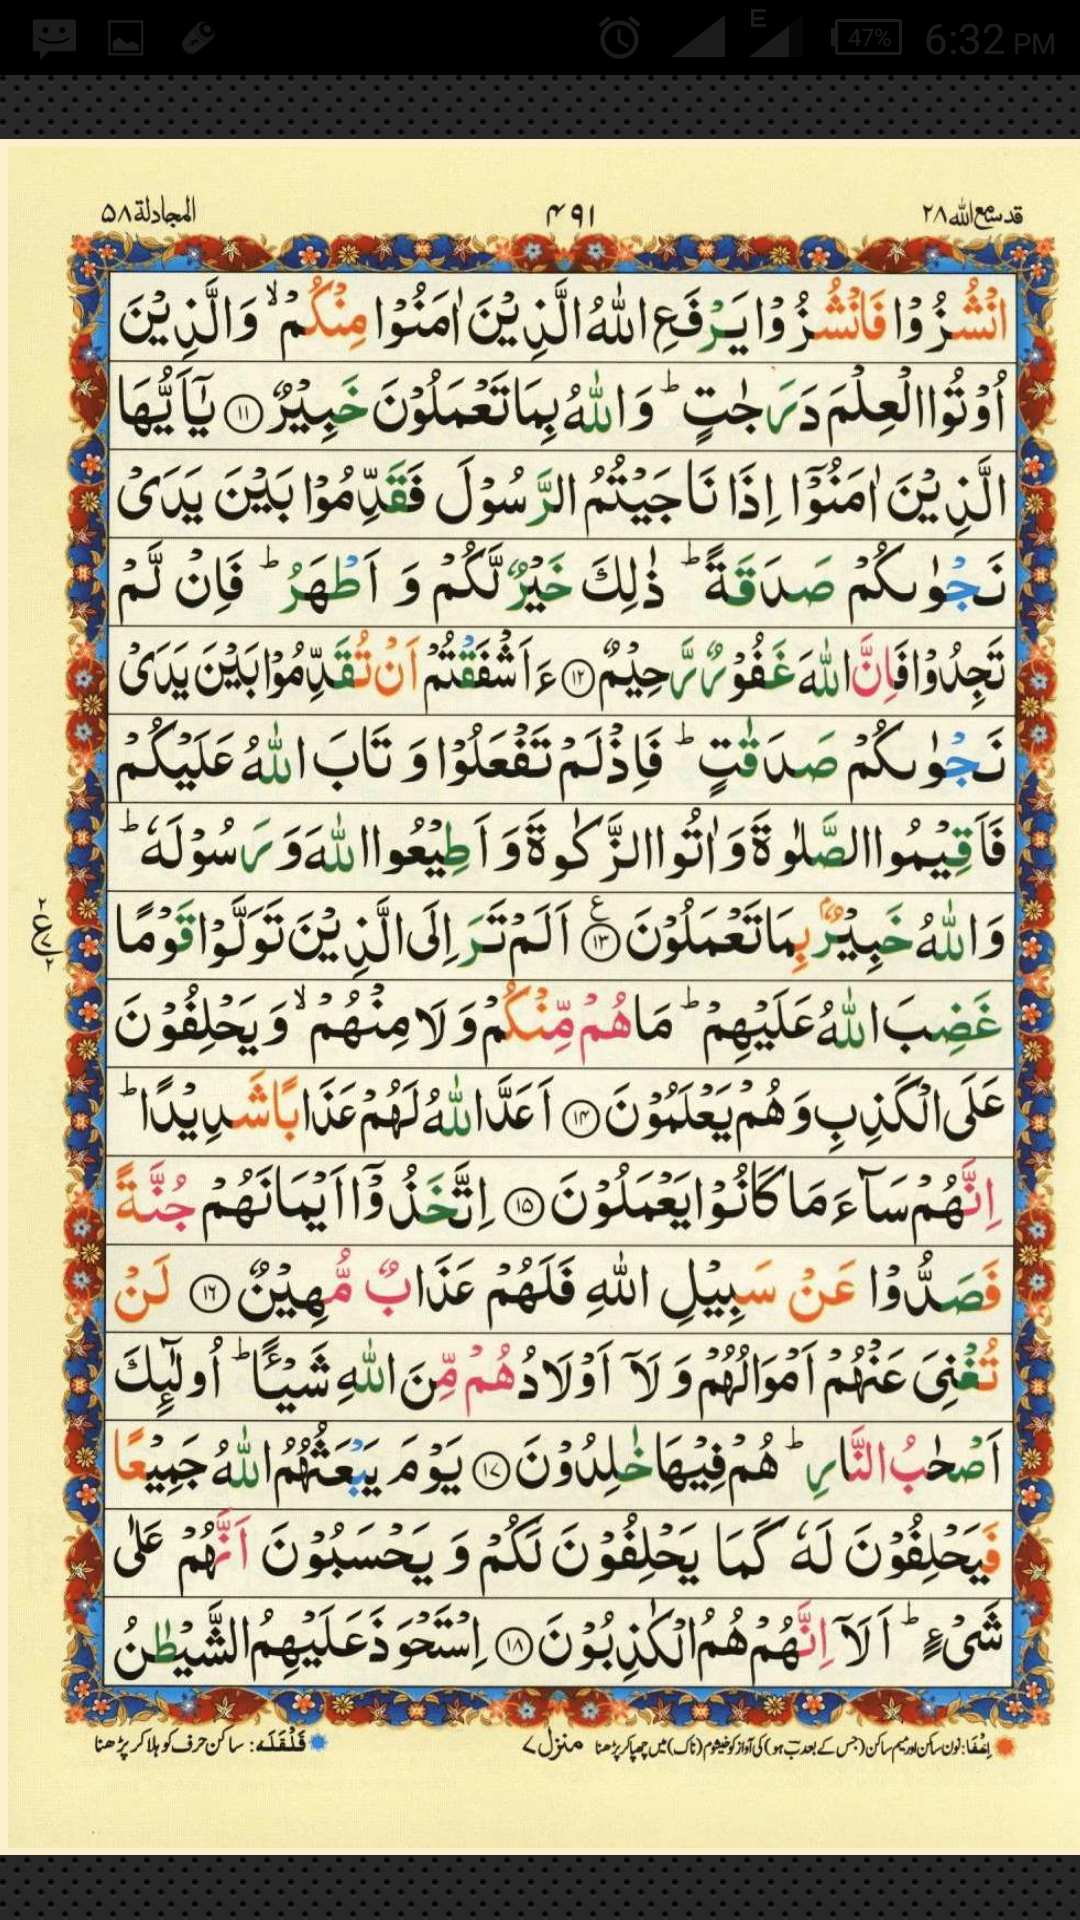 47% 6:32 PM
E
قد سمع الله ٢٨ ٤٩١ المجادلة ٥٨
انْشُزُوْا فَانْشُزُوْا يَرْفَعِ اللّٰهُ الَّذِيْنَ اٰمَنُوْا مِنْكُمْ ۙ وَالَّذِيْنَ
اُوْتُوا الْعِلْمَ دَرَجٰتٍ ؕ وَاللّٰهُ بِمَا تَعْمَلُوْنَ خَبِيْرٌ ﴿۱۱﴾ يٰۤاَيُّهَا
الَّذِيْنَ اٰمَنُوْۤا اِذَا نَاجَيْتُمُ الرَّسُوْلَ فَقَدِّمُوْا بَيْنَ يَدَىْ
نَجْوٰىكُمْ صَدَقَةً ؕ ذٰلِكَ خَيْرٌ لَّكُمْ وَ اَطْهَرُ ؕ فَاِنْ لَّمْ
تَجِدُوْا فَاِنَّ اللّٰهَ غَفُوْرٌ رَّحِيْمٌ ﴿۱۲﴾ ءَاَشْفَقْتُمْ اَنْ تُقَدِّمُوْا بَيْنَ يَدَىْ
نَجْوٰىكُمْ صَدَقٰتٍ ؕ فَاِذْ لَمْ تَفْعَلُوْا وَ تَابَ اللّٰهُ عَلَيْكُمْ
فَاَقِيْمُوا الصَّلٰوةَ وَ اٰتُوا الزَّكٰوةَ وَ اَطِيْعُوا اللّٰهَ وَ رَسُوْلَهٗ ؕ
وَاللّٰهُ خَبِيْرٌۢ بِمَا تَعْمَلُوْنَ ﴿۱۳﴾ ع اَلَمْ تَرَ اِلَى الَّذِيْنَ تَوَلَّوْا قَوْمًا
۲ ع ۷ ۲
غَضِبَ اللّٰهُ عَلَيْهِمْ ؕ مَا هُمْ مِّنْكُمْ وَلَا مِنْهُمْ ۙ وَيَحْلِفُوْنَ
عَلَى الْكَذِبِ وَ هُمْ يَعْلَمُوْنَ ﴿۱۴﴾ اَعَدَّ اللّٰهُ لَهُمْ عَذَابًا شَدِيْدًا ؕ
اِنَّهُمْ سَآءَ مَا كَانُوْا يَعْمَلُوْنَ ﴿۱۵﴾ اِتَّخَذُوْۤا اَيْمَانَهُمْ جُنَّةً
فَصَدُّوْا عَنْ سَبِيْلِ اللّٰهِ فَلَهُمْ عَذَابٌ مُّهِيْنٌ ﴿۱۶﴾ لَنْ
تُغْنِىَ عَنْهُمْ اَمْوَالُهُمْ وَ لَاۤ اَوْلَادُهُمْ مِّنَ اللّٰهِ شَيْـًٔا ؕ اُولٰٓئِكَ
اَصْحٰبُ النَّارِ ؕ هُمْ فِيْهَا خٰلِدُوْنَ ﴿۱۷﴾ يَوْمَ يَبْعَثُهُمُ اللّٰهُ جَمِيْعًا
فَيَحْلِفُوْنَ لَهٗ كَمَا يَحْلِفُوْنَ لَكُمْ وَ يَحْسَبُوْنَ اَنَّهُمْ عَلٰى
شَىْءٍ ؕ اَلَاۤ اِنَّهُمْ هُمُ الْكٰذِبُوْنَ ﴿۱۸﴾ اِسْتَحْوَذَ عَلَيْهِمُ الشَّيْطٰنُ
اِخفَا: نون ساکن اور میم ساکن (جس کے بعد ب ہو) کی آواز کو خیشوم (ناک) میں چھپا کر پڑھنا منزل ۷ قَلْقَلَہ: ساکن حرف کو ہلا کر پڑھنا